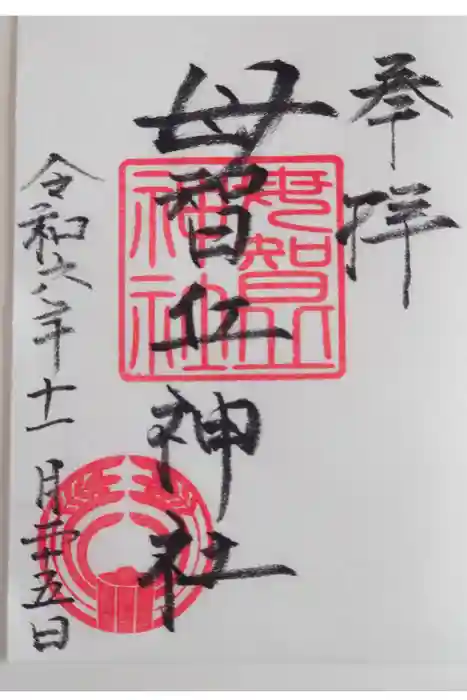 奉拝
母智丘神社
令和六年十一月二十五日
母智丘
神社